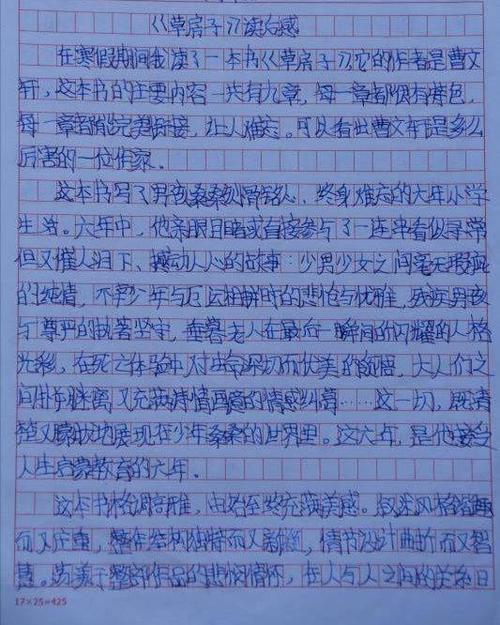 《草房子》读后感
在寒假期间我读了一本书《草房子》,它的作者是曹文
轩,这本书的主要内容一共有九章,每一章都很有特色,
每一章都能完美衔接,让人难忘。可以看出曹文轩是多么
厉害的一位作家。
这本书写了男孩桑桑刻骨铭心、终身难忘的六年小学
生活。六年中,他亲眼目睹或直接参与了一连串看似寻常
但又催人泪下、撼动人心的故事:少男少女之间毫无瑕疵
的纯情,不幸少年与厄运相拼时的悲怆与优雅,残疾男孩
与尊严的执著坚守,垂暮老人在最后一瞬间的闪耀的人格
光彩,在死亡体验中对生命深切而优美的领悟,大人们之
间扑朔迷离又充满诗情画意的情感纠葛……这一切,既清
楚又朦胧地展现在少年桑桑的世界里。这六年,是他接受
人生启蒙教育的六年。
这本书格调高雅,由始至终充满美感。叙述风格谐趣
而又庄重,整体结构独特而又新颖,情节设计曲折而又智
慧。荡漾于整部作品的悲悯情怀,在人与人之间的关系日
17×25=425